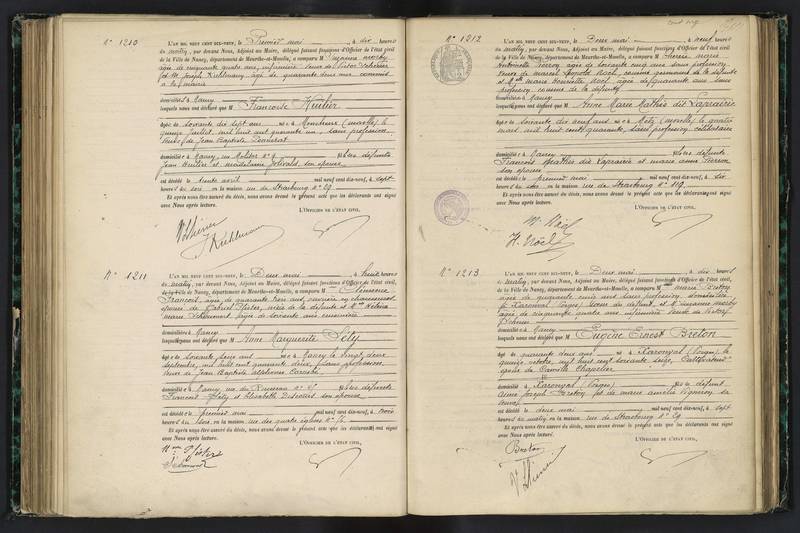 N° 1210
L'AN MIL NEUF CENT DIX-NEUF, le Premier mai, à dix heures
du matin, par devant Nous, Adjoint au Maire, délégué faisant fonctions d'Officier de l'état civil
de la Ville de Nancy, département de Meurthe-et-Moselle, a comparu M Suzanne
âgée de cinquante quatre ans, infirmière veuve de Victor
et M. Joseph Kuhlmann, âgé de quarante deux ans commis
à la mairie
domiciliés à Nancy
lesquels nous ont déclaré que M Françoise Hurlier
âgée de soixante dix sept ans née à Moncheux (Moselle) le
quinze juillet mil huit cent quarante un, sans profession
veuve de Jean Baptiste
domiciliée à Nancy, rue Molitor n° fille des défunts
Jean Hurlier et Madeleine son épouse
est décédée le trente avril mil neuf cent dix-neuf, à sept
heures du soir, en la maison rue de Strasbourg n° 29
Et après nous être assuré du décès, nous avons dressé le présent acte que les déclarants ont signé
avec Nous après lecture.
L'OFFICIER DE L'ÉTAT CIVIL,
J Kuhlmann
N° 1211
L'AN MIL NEUF CENT DIX-NEUF, le Deux mai, à huit heures
du matin, par devant Nous, Adjoint au Maire, délégué faisant fonctions d'Officier de l'état civil
de la Ville de Nancy, département de Meurthe-et-Moselle, a comparu M Clémence
François, âgée de quarante trois ans, ouvrière en chaussures
épouse de Gabriel nièce de la défunte et Mme Héléna
Marie âgée de soixante ans
domiciliées à Nancy
lesquelles nous ont déclaré que M Anne Marguerite Péty
âgée de soixante seize ans née à Nancy le vingt deux
septembre, mil huit cent quarante deux, sans profession,
veuve de Jean Baptiste Alphonse
domiciliée à Nancy, rue du Ruisseau n° 21 fille des défunts
François Péty et Elisabeth son épouse
est décédée le premier mai mil neuf cent dix-neuf, à trois
heures du soir, en la maison rue des quatre églises n°
Et après nous être assuré du décès, nous avons dressé le présent acte que les déclarants ont signé
avec Nous après lecture.
L'OFFICIER DE L'ÉTAT CIVIL,
Mme
N° 1212
L'AN MIL NEUF CENT DIX-NEUF, le Deux mai, à neuf heures
du matin, par devant Nous, Adjoint au Maire, délégué faisant fonctions d'Officier de l'état civil
de la Ville de Nancy, département de Meurthe-et-Moselle, a comparu M Thérèse Marie
Antoinette âgée de soixante cinq ans sans profession
veuve de Marcel Noël, cousine germaine de la défunte
et Mlle Marie Henriette Noël, âgée de quarante ans sans
profession cousine de la défunte
domiciliées à Nancy
lesquelles nous ont déclaré que M Anne Marie Mathis dit Laprairie
âgée de soixante dix neuf ans née à Metz (Moselle), le quatre
mars mil huit cent quarante, sans profession célibataire
domiciliée à Nancy fille des défunts
François Mathis dit Laprairie et Marie Anne
son épouse
est décédée le premier mai mil neuf cent dix-neuf, à dix
heures du soir en la maison rue de Strasbourg n° 119
Et après nous être assuré du décès, nous avons dressé le présent acte que les déclarantes ont signé
avec Nous après lecture.
L'OFFICIER DE L'ÉTAT CIVIL,
M. Noël
H. Noël
N° 1213
L'AN MIL NEUF CENT DIX-NEUF, le Deux mai, à dix heures
du matin, par devant Nous, Adjoint au Maire, délégué faisant fonctions d'Officier de l'état civil,
de la Ville de Nancy, département de Meurthe-et-Moselle, a comparu M Marie Breton
âgée de quarante cinq ans sans profession domiciliée
à Xaronval Vosges, soeur du défunt et M Suzanne
âgée de cinquante quatre ans infirmière veuve de Victor
domiciliée à Nancy
lesquelles nous ont déclaré que M Eugène Ernest Breton
âgé de quarante deux ans né à Xaronval (Vosges) le
quinze octobre mil huit cent soixante seize, Cultivateur
époux de Camille Chapelier
domicilié à Xaronval (Vosges) fils de défunt
Anne Joseph Breton et de Marie Amélie Vigneron sa
veuve
est décédé le deux mai mil neuf cent dix-neuf, à sept
heures du matin en la maison rue de Strasbourg n° 29
Et après nous être assuré du décès, nous avons dressé le présent acte que les déclarants ont signé
avec Nous après lecture.
L'OFFICIER DE L'ÉTAT CIVIL,
Breton